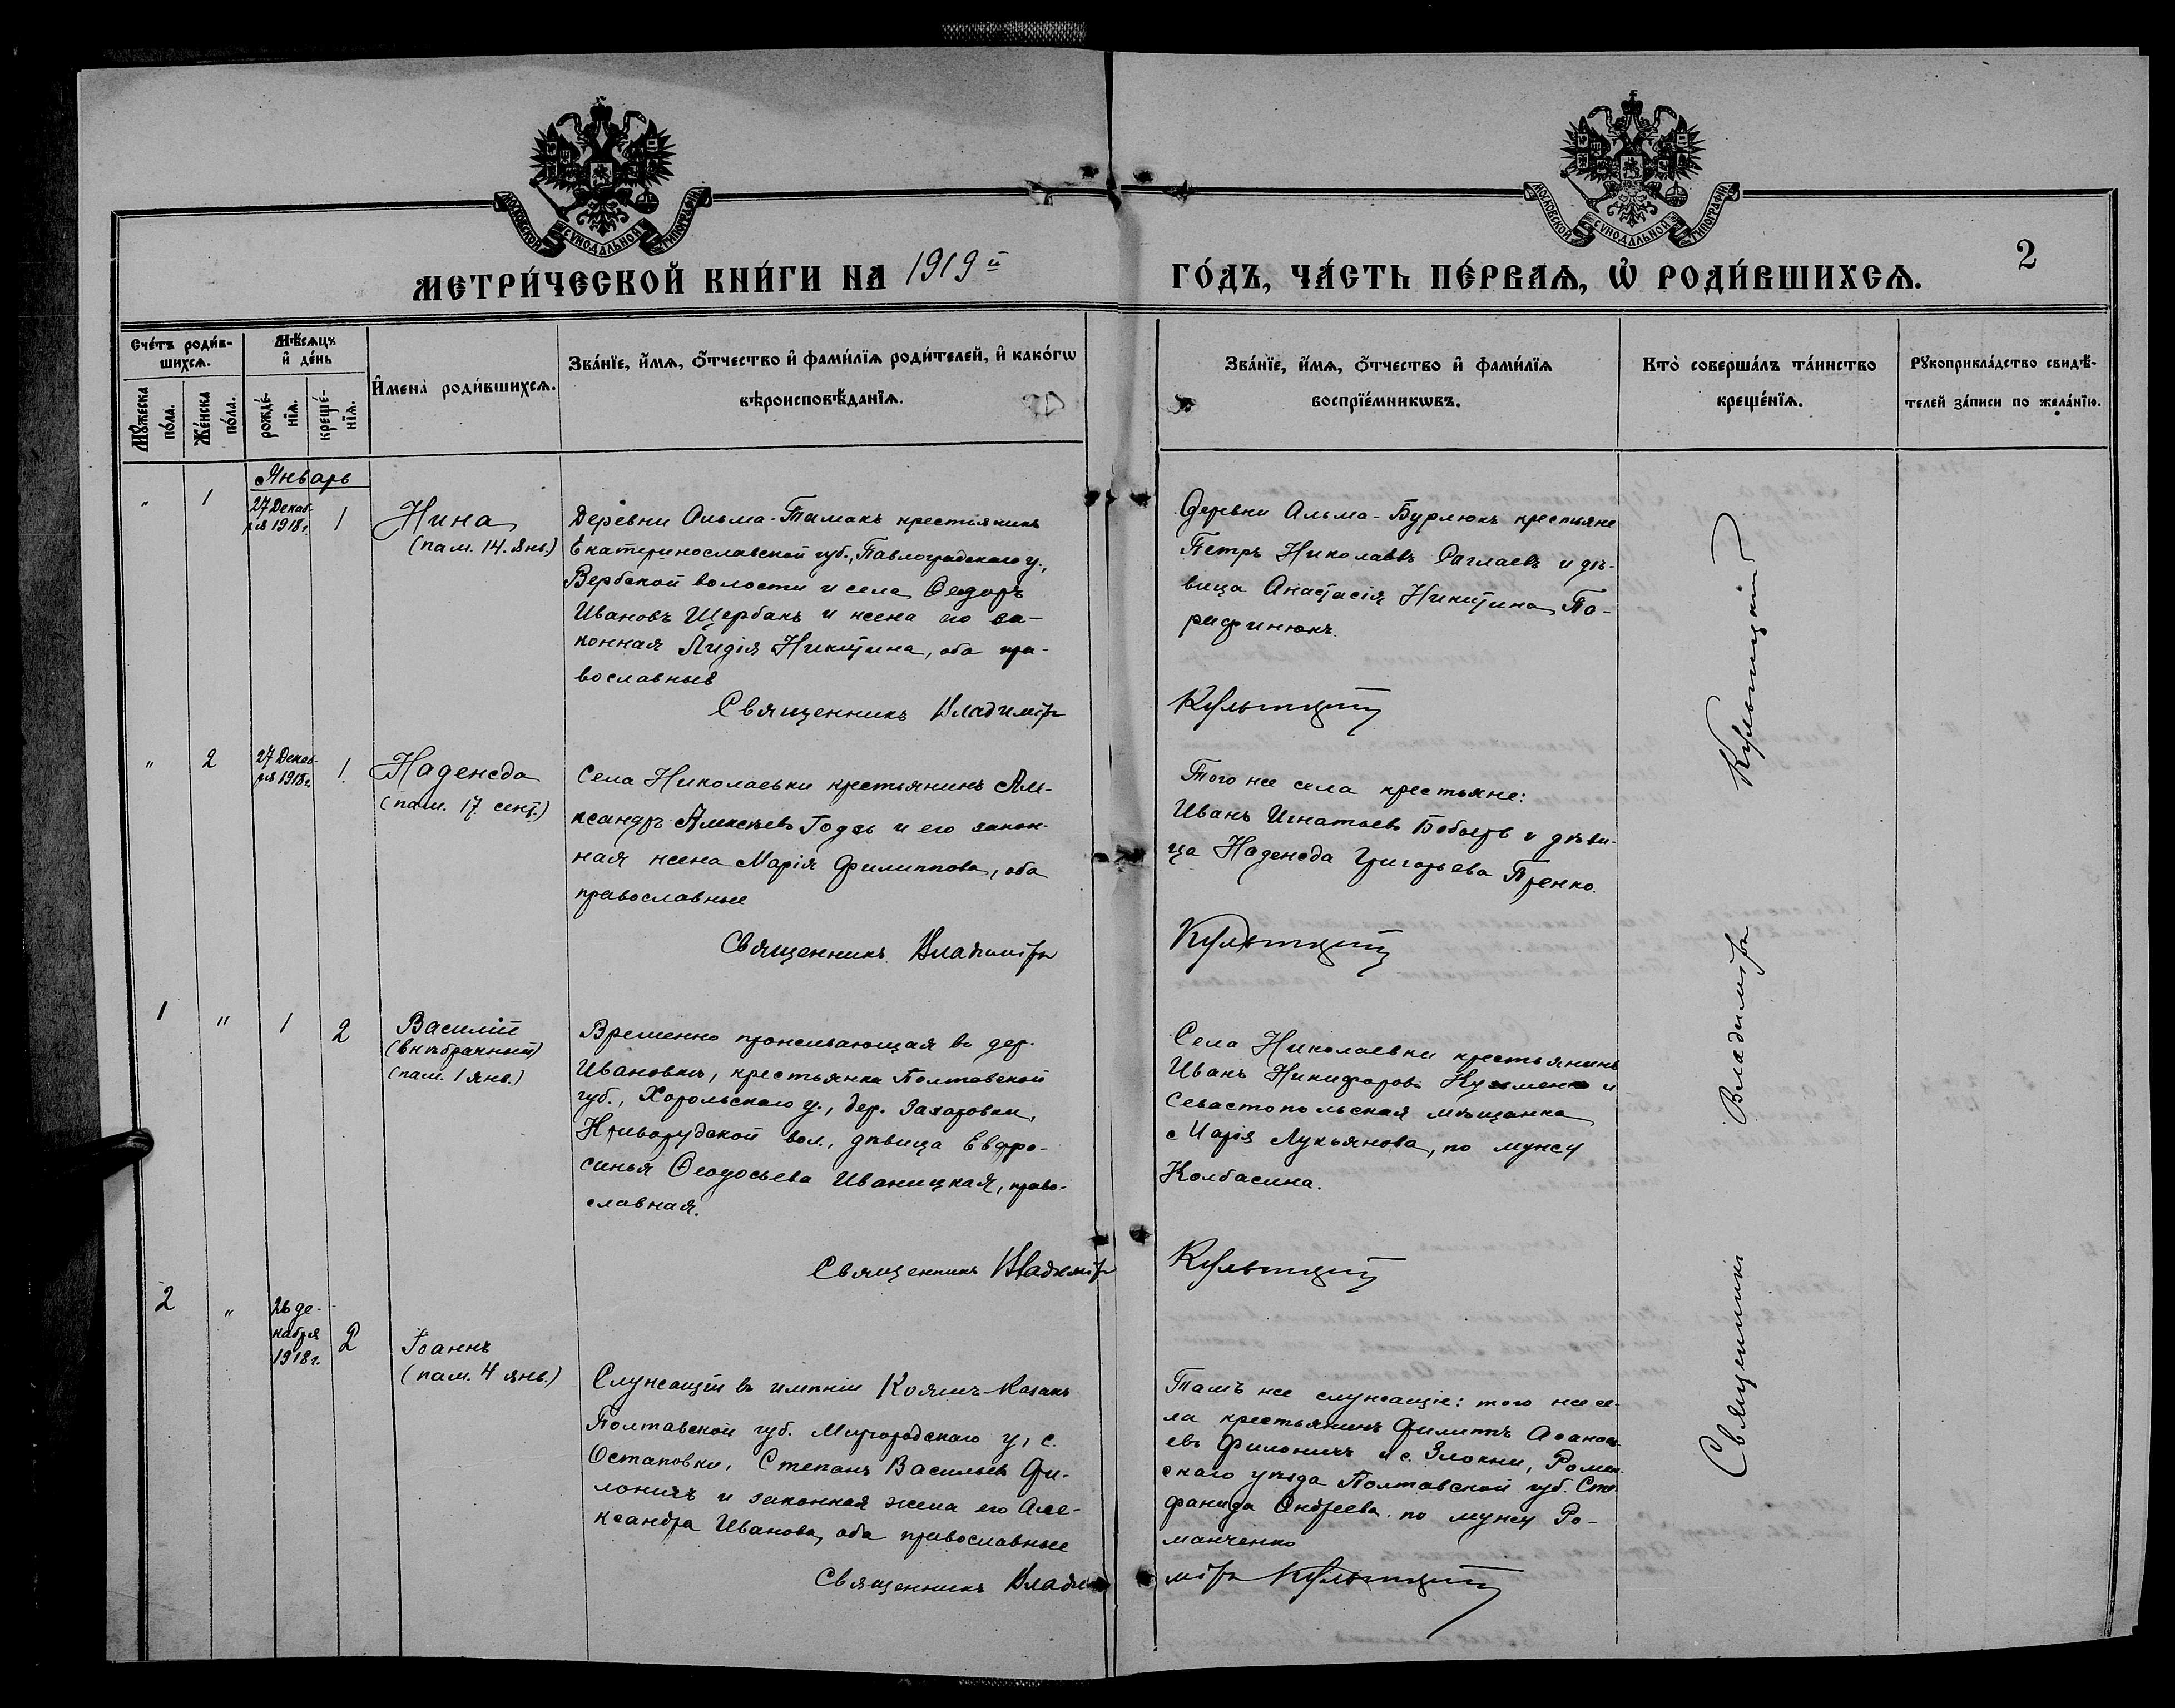 МОСКОВСКОЙ СѴНОДАЛЬНОЙ ТИПОГРАФІИ
МОСКОВСКОЙ СѴНОДАЛЬНОЙ ТИПОГРАФІИ
2
МЕТРИ́ЧЕСКОЙ КНИ́ГИ НА 1919й
ГО́ДЪ, ЧА́СТЬ ПЕ́РВАѦ, Ѡ҆ РОДИ́ВШИХСѦ.
Сче́тъ роди́в-
шихсѧ.
Мѣ́сѧцъ
и҆ де́нь
Мꙋ́жеска
по́ла.
Же́нска
по́ла.
рожде́-
нїѧ.
креще́-
нїѧ.
И҆мена̀ роди́вшихсѧ.
Зва́нїе, и҆́мѧ, ѻ҆́тчество и҆ фами́лїѧ роди́телей, и҆ како́гѡ
вѣроисповѣ́данїѧ.
Зва́нїе, и҆́мѧ, ѻ҆́тчество и҆ фами́лїѧ
воспрїе́мникѡвъ.
Кто̀ соверша́лъ та́инство
креще́нїѧ.
Рꙋкоприкла́дство свидѣ́-
телей за́писи по жела́нїю.
Январь
" 1 27 Декаб-
ря 1918г. 1
Нина
(пам. 14. янв.)
Деревни Альма-Тамакъ крестьянинъ
Екатеринославской губ., Павлоградскаго у.,
Вербской волости и села Ѳедоръ
Ивановъ Щербакъ и жена его за-
конная Лидія Никитина, оба пра-
вославные
Священникъ Владиміръ
Деревни Альма-Бурлюкъ крестьяне
Петръ Николаевъ и дѣ-
вица Анастасія Никитина
Культицкій
" 2 27 Декаб-
ря 1918г. 1
Надежда
(пам. 17 сент.)
Села Николаевки крестьянинъ Але-
ксандръ Алексѣевъ и его закон-
ная жена Марія Филиппова, оба
православные
Священникъ Владиміръ
Того же села крестьяне:
Иванъ Игнатьевъ Бобырь и дѣви-
ца Надежда Григорьева
Культицкій
1 " 1 2
Василій
(внѣбрачный)
(пам. 1 янв.)
Временно проживающая въ дер.
Ивановкѣ, крестьянка Полтавской
губ., Хорольскаго у., дер. Захаровки,
Криворудской вол., дѣвица Евфро-
синья Ѳеодосьева Иваницкая, право-
славная.
Священникъ Владиміръ
Села Николаевки крестьянинъ
Иванъ Никифоровъ Кузменко и
Севастопольская мѣщанка
Марія Лукьянова, по мужу
Колбасина.
Культицкій
2 " 26 де-
кабря
1918г. 2
Іоаннъ
(пам. 4 янв.)
Служащій въ имѣніи Кояшъ-Казакъ
Полтавской губ. Миргородскаго у, с.
Остаповки, Степанъ Васильевъ Фи-
лоничъ и законная жена его Але-
ксандра Иванова, оба православные
Священникъ Влади
Тамъ же служащіе: того же се-
ла крестьянинъ Филиппъ
евъ Филоничъ и с. Ромен-
скаго уѣзда Полтавской губ. Сте-
фанида Андреева по мужу Ро-
манченко
міръ Культицкій
Священникъ Владиміръ Культицкій